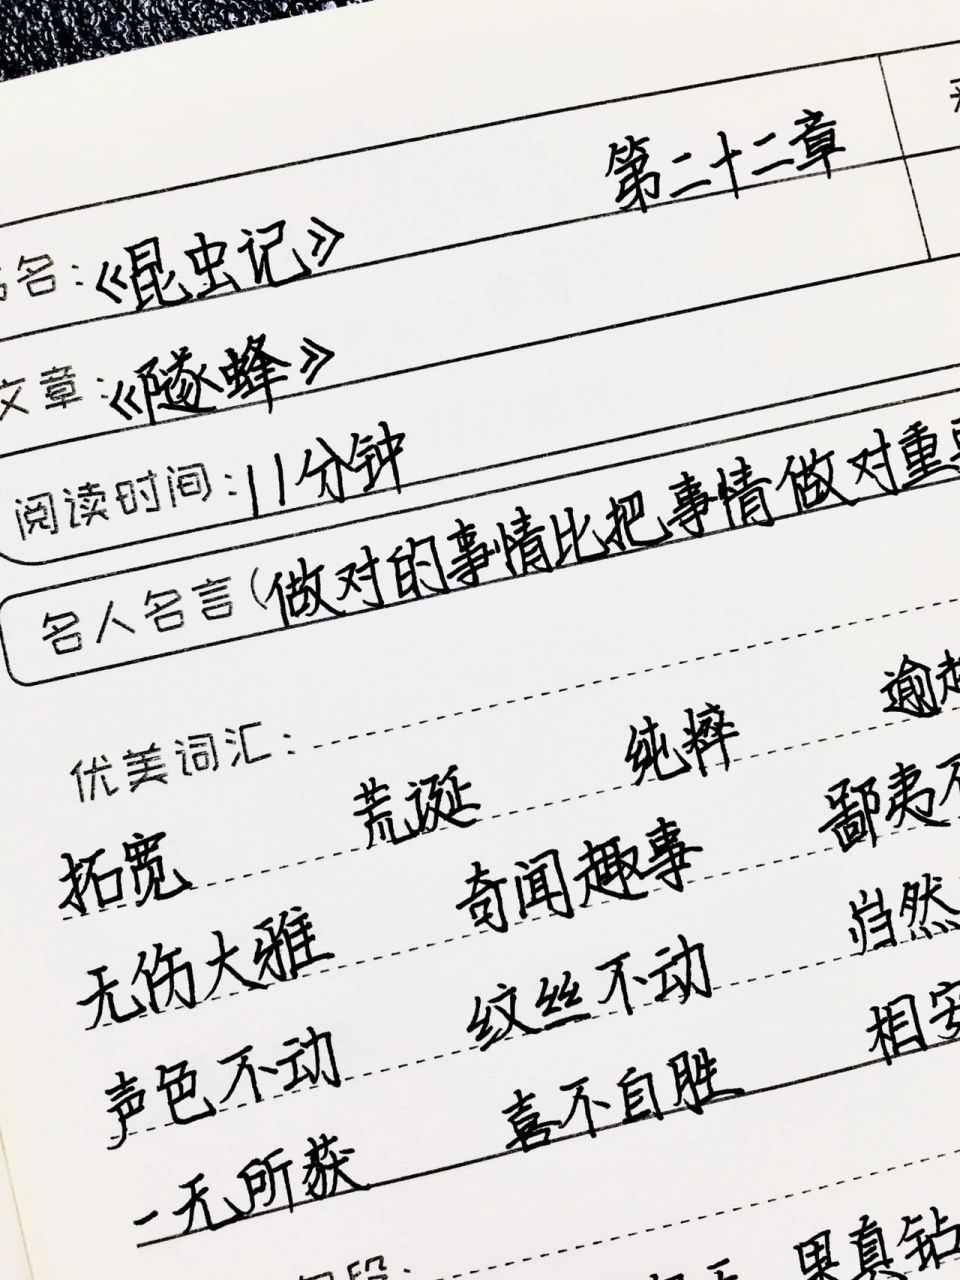 名：《昆虫记》 第二十二章
文章：《隧蜂》
阅读时间：11分钟
名人名言（做对的事情比把事情做对重
优美词汇：
拓宽 荒诞 纯粹 逾
无伤大雅 奇闻趣事 鄙夷不
声色不动 纹丝不动 岿然
一无所获 喜不自胜 相安
段：
果真钻